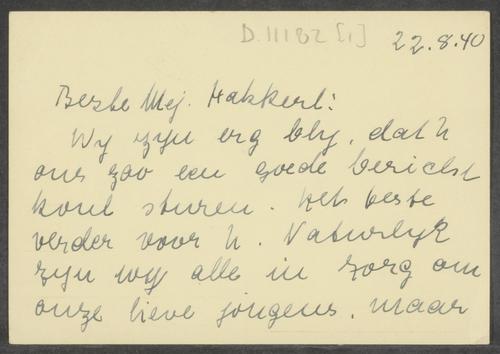 D.11182 [1]
22.8.40
Beste Mej. Hakkert:
Wy zyn erg bly, dat U
ons zoo een goede bericht
kont sturen. Het beste
verder voor U. Natuurlyk
zyn wy alle in zorg om
onze lieve jongens, maar